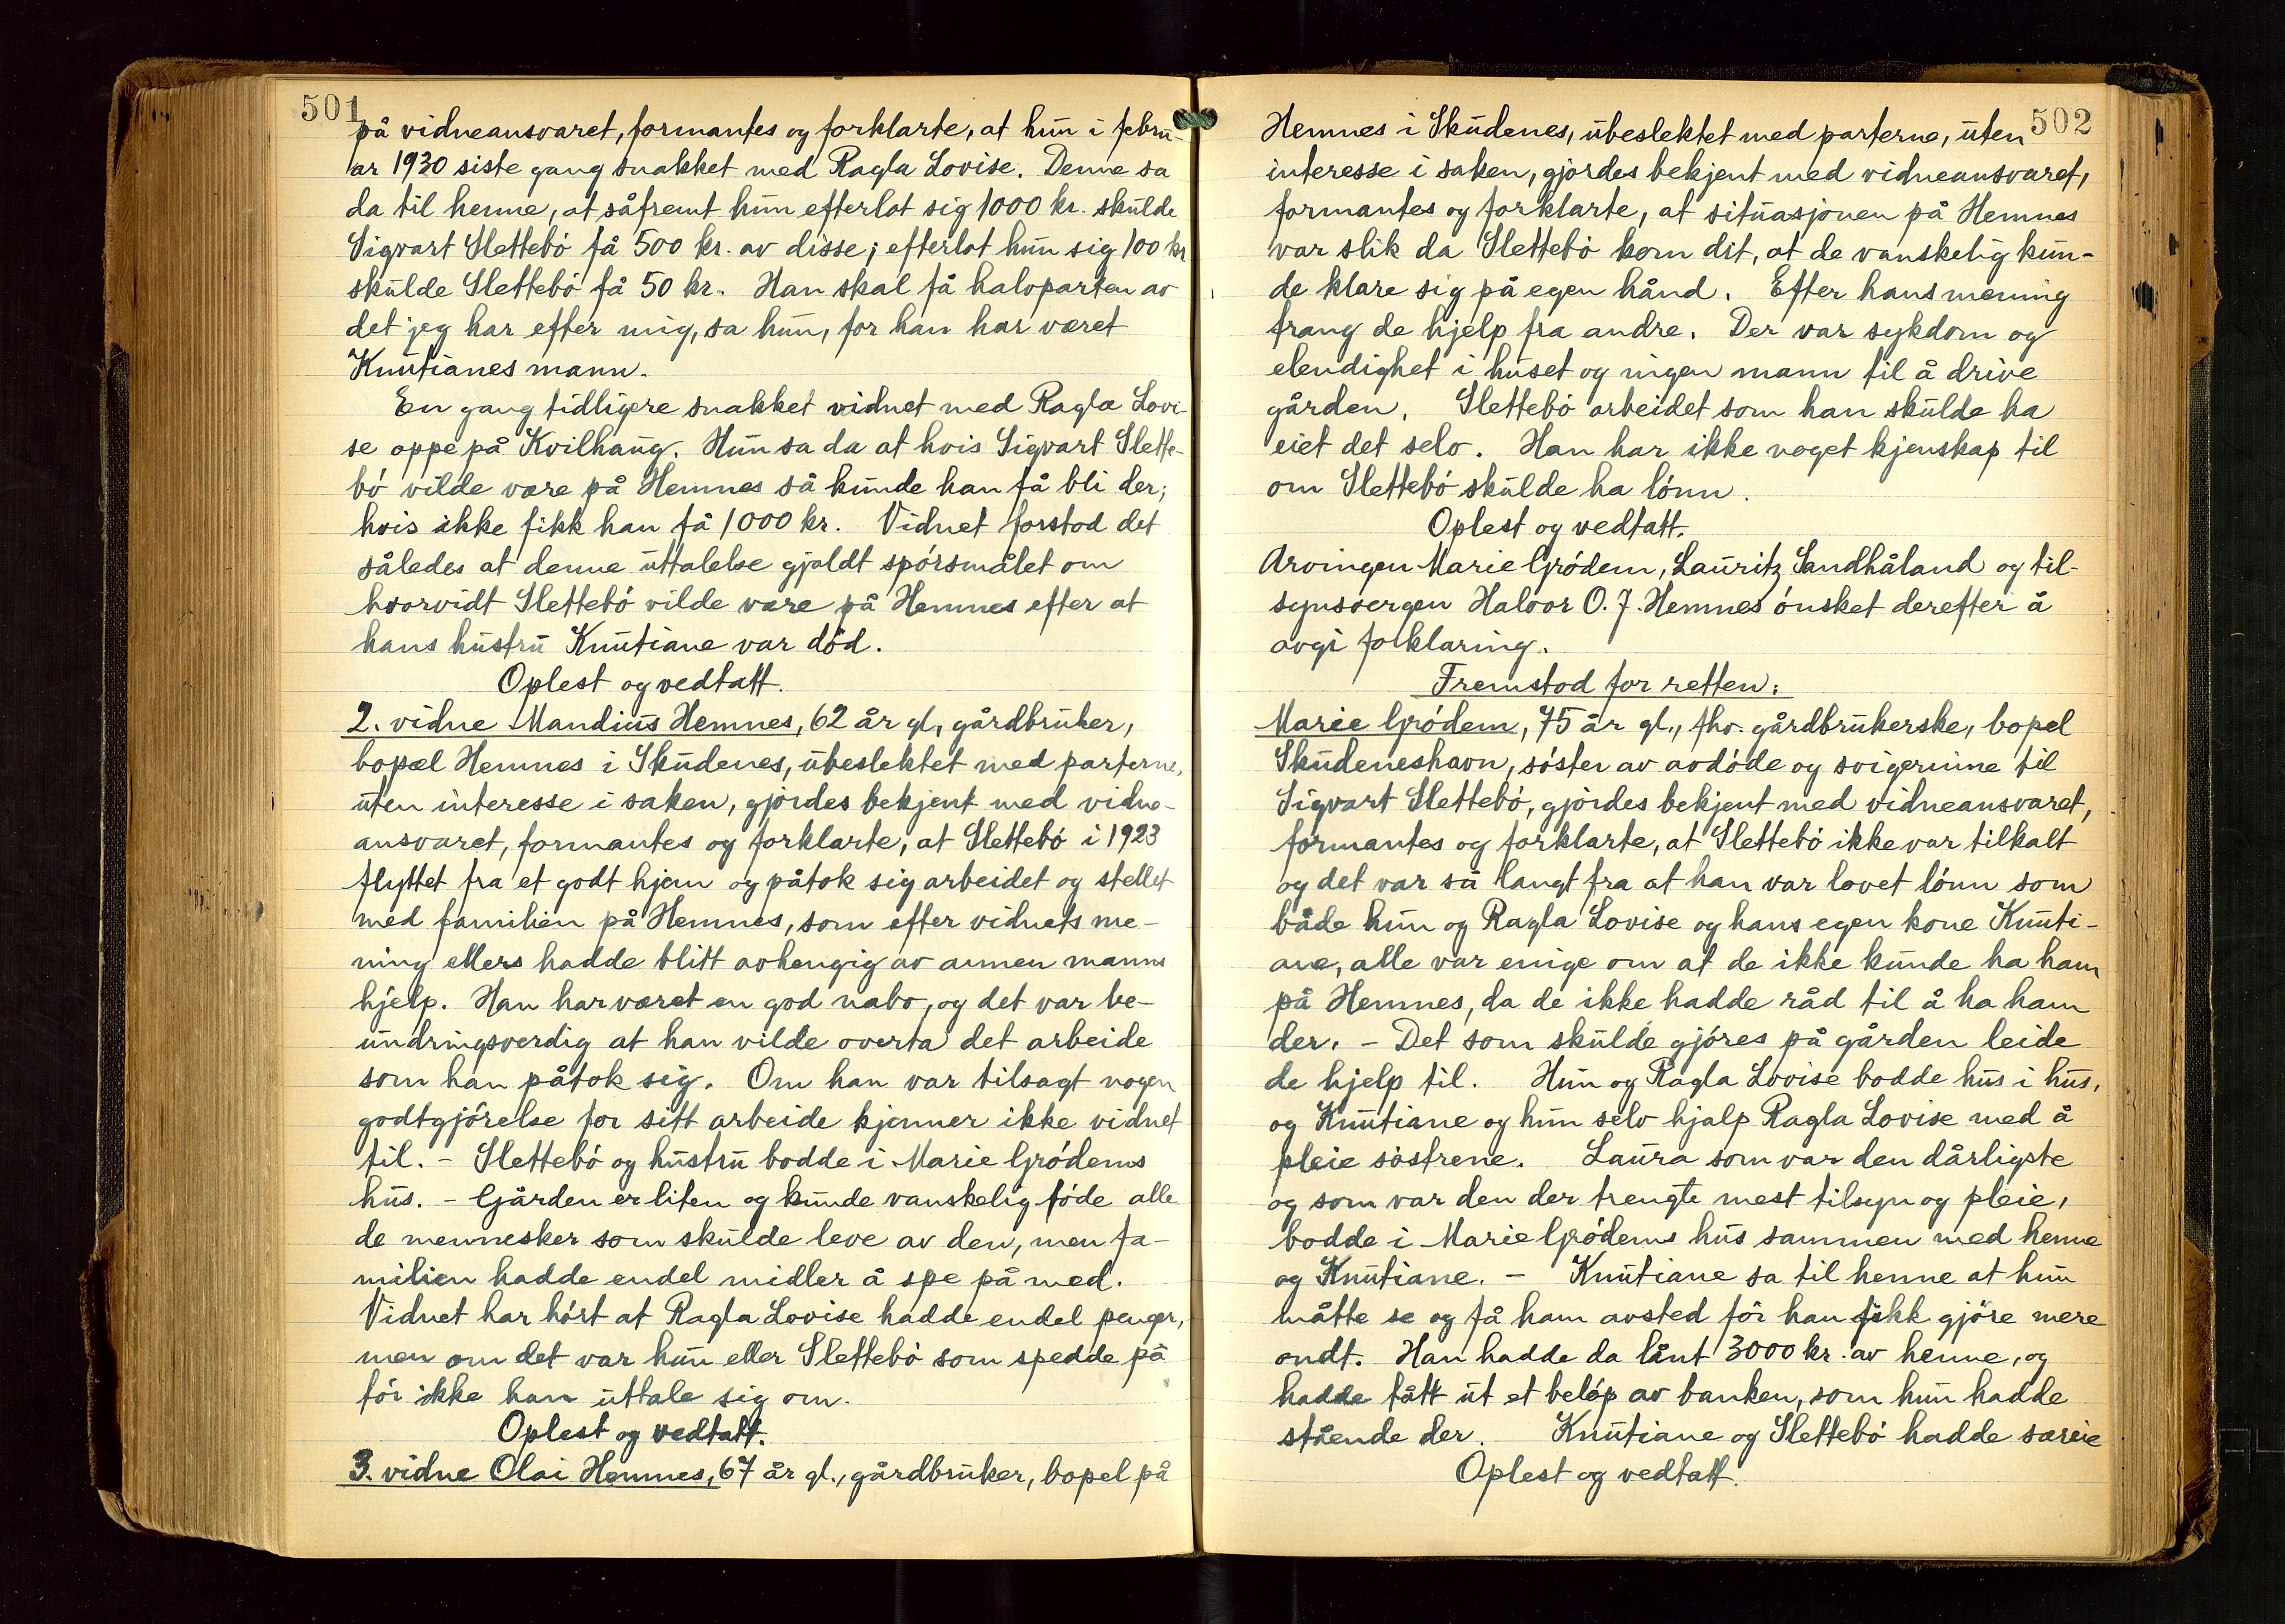 501
på vidneansvaret, formantes og forklarte, at hun i febru-
ar 1930 siste gang snakket med Ragla Lovise. Denne sa
da til henne, at såfremt hun efterlot sig 1000 kr. skulde
Sigvart Slettebó få 500 kr. av disse; efterlot hun sig 100 kr
skulde Slettebó få 50 kr. Han skal få halvparten av
det jeg har efter mig, sa hun, for han har været
Knutianes mann.
En gang tidligere snakket vidnet med Ragla Lovi-
se oppe på Kvilhaug. Hun sa da at hvis Sigvart Slette-
bó vilde være på Hemnes så kunde han få bli der;
hvis ikke fikk han få 1000 kr. Vidnet forstod det
således at denne uttalelse gjaldt spórsmålet om
hvorvidt Slettebó vilde være på Hemnes efter at
hans hustru Knutiane var död.
Oplest og vedtatt.
2. vidne Mandius Hemnes, 62 år gl, gårdbruker,
bopæl Hemnes i Skudenes, ubeslektet med parterne,
uten interesse i saken, gjórdes bekjent med vidne-
ansvaret, formantes og forklarte, at Slettebó i 1923
flyttet fra et godt hjem og påtok sig arbeidet og stellet
med familien på Hemnes, som efter vidnets me-
ning ellers hadde blitt avhengig av annen manns
hjelp. Han har været en god nabo, og det var be-
undringsverdig at han vilde overta det arbeide
som han påtok sig. Om han var tilsagt nogen
godtgjórelse for sitt arbeide kjenner ikke vidnet
til. - Slettebó og hustru bodde i Marie Gródems
hus. - Gården er liten og kunde vanskelig fóde alle
de mennesker som skulde leve av den, men fa-
milien hadde endel midler å spe på med.
Vidnet har hórt at Ragla Lovise hadde endel penger,
men om det var hun eller Slettebó som spedde på
tór ikke han uttale sig om.
Oplest og vedtatt.
3. vidne Olai Hemnes, 67 år gl., gårdbruker, bopel på
502
Hemnes i Skudenes, ubeslektet med parterne, uten
interesse i saken, gjórdes bekjent med vidneansvaret,
formantes og forklarte, at situasjonen på Hemnes
var slik da Slettebó kom dit, at de vanskelig kun-
de klare sig på egen hånd. Efter hans mening
trang de hjelp fra andre. Der var sykdom og
elendighet i huset og ingen mann til å drive
gården. Slettebó arbeidet som han skulde ha
eiet det selv. Han har ikke noget kjenskap til
om Slettebó skulde ha lónn.
Oplest og vedtatt.
Arvingen Marie Gródem, Lauritz Sandhåland og til-
synsvergen Halvor O. J. Hemnes ónsket derefter å
avgi forklaring.
Fremstod for retten:
Marie Gródem, 75 år gl., fhv. gårdbrukerske, bopel
Skudeneshavn, sóster av avdóde og svigerinne til
Sigvart Slettebó, gjórdes bekjent med vidneansvaret,
formantes og forklarte, at Slettebó ikke var tilkalt
og det var så langt fra at han var lovet lónn som
både hun og Ragla Lovise og hans egen kone Knuti-
ane, alle var enige om at de ikke kunde ha ham
på Hemnes, da de ikke hadde råd til å ha ham
der. - Det som skulde gjóres på gården leide
de hjelp til. Hun og Ragla Lovise bodde hus i hus,
og Knutiane og hun selv hjalp Ragla Lovise med å
pleie sóstrene. Laura som var den dårligste
og som var den der trengte mest tilsyn og pleie,
bodde i Marie Gródems hus sammen med henne
og Knutiane. - Knutiane sa til henne at hun
måtte se og få ham avsted fór han fikk gjóre mere
ondt. Han hadde da lånt 3000 kr. av henne, og
hadde fått ut et belóp av banken, som hun hadde
stående der. Knutiane og Slettebó hadde særeie
Oplest og vedtatt.